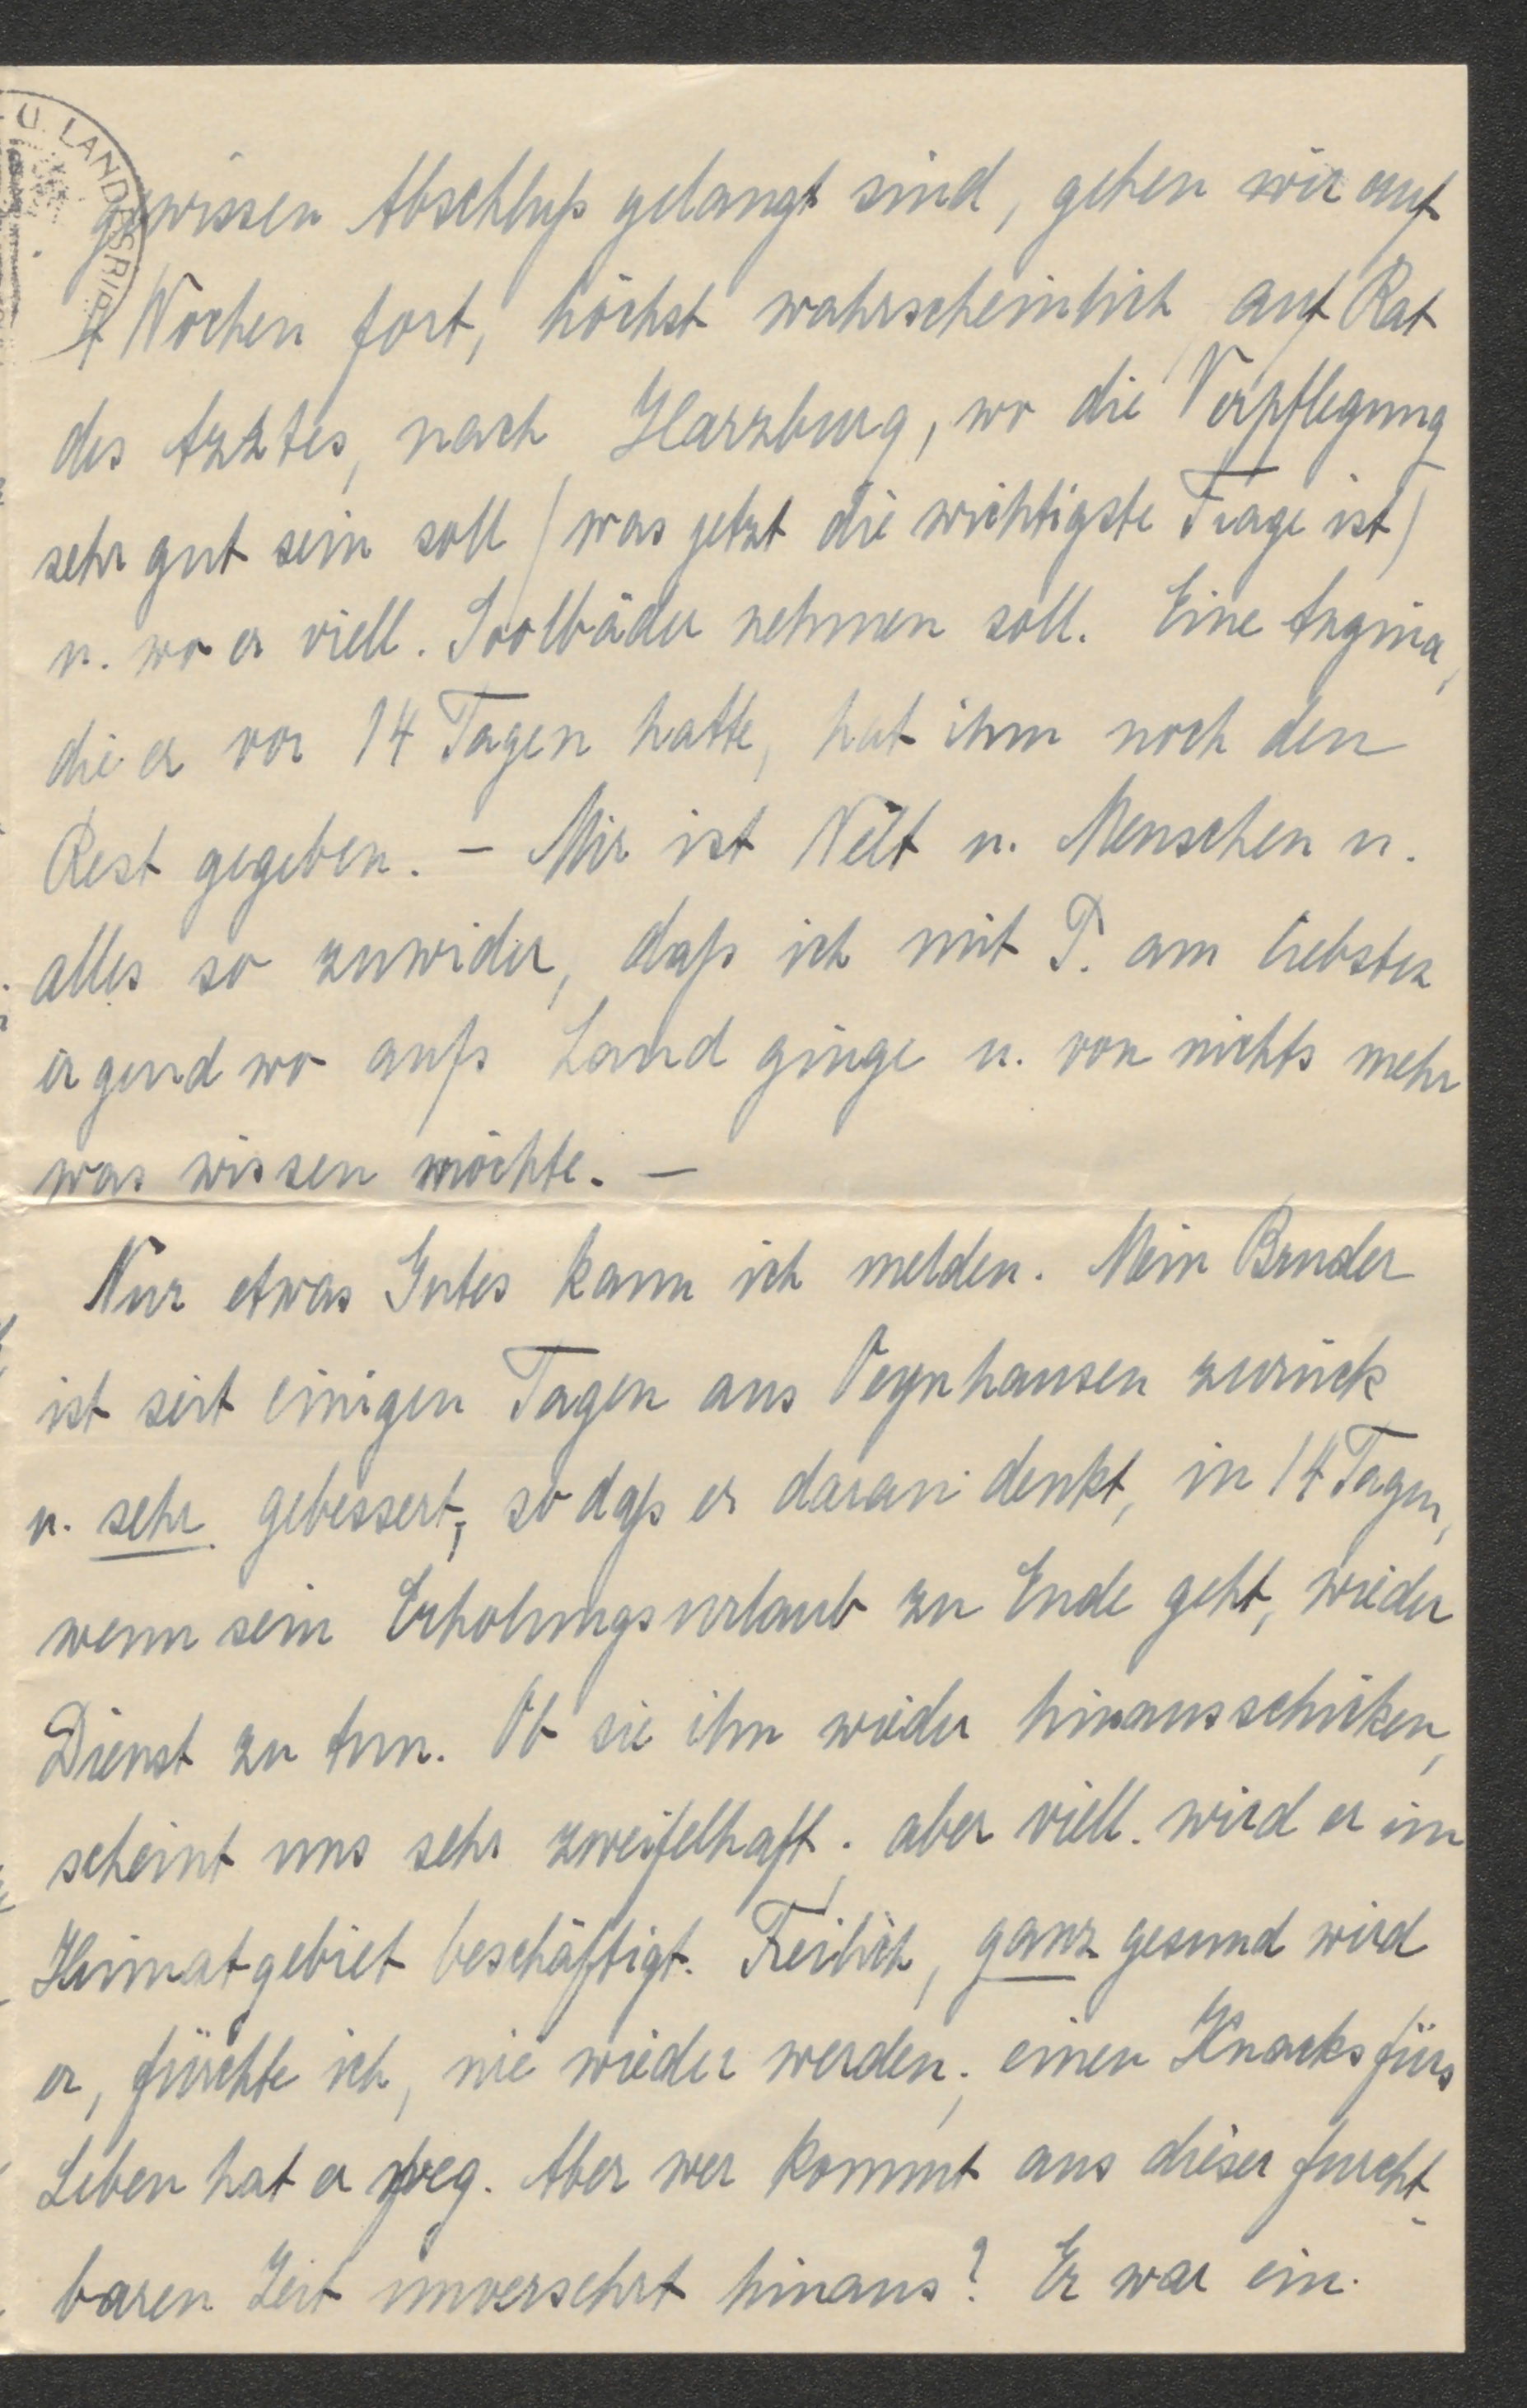 U. LANDESBIB
gewissen Abschluß gelangt sind, gehen wir auf
4 Wochen fort, höchst wahrscheinlich, auf Rat
des Arztes, nach Harzburg, wo die Verpflegung
sehr gut sein soll (was jetzt die wichtigste Frage ist)
u. wo er viell. Soolbäder nehmen soll. Eine Angina,
die er vor 14 Tagen hatte, hat ihm noch den
Rest gegeben. – Mir ist Welt u. Menschen u.
alles so zuwider, daß ich mit P. am liebsten
irgendwo aufs Land ginge u. von nichts mehr
was wissen möchte. –
Nur etwas Gutes kann ich melden. Mein Bruder
ist seit einigen Tagen aus Oeynhausen zurück
u. sehr gebessert, so daß er daran denkt, in 14 Tagen,
wenn sein Erholungsurlaub zu Ende geht, wieder
Dienst zu tun. Ob sie ihn wieder hinausschicken,
scheint uns sehr zweifelhaft; aber viell. wird er im
Heimatgebiet beschäftigt. Freilich, ganz gesund wird
er, fürchte ich, nie wieder werden; einen Knacks fürs
Leben hat er weg. Aber wer kommt aus dieser furcht-
baren Zeit unversehrt hinaus? Er war ein